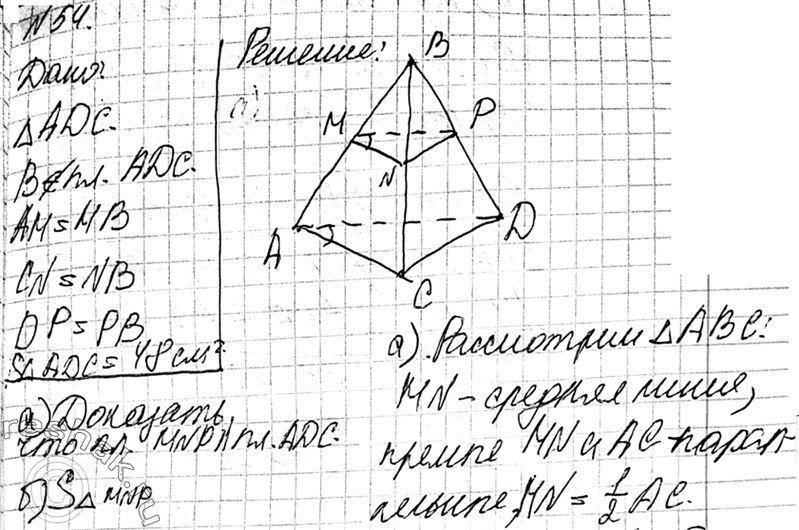 №54.
Дано:
△ADC.
B∉пл. ADC.
AM=MB
CN=NB
DP=PB
S△ADC=48см².
а) Доказать,
что пл. MNP∥пл.ADC.
б) S△MNP
Решение:
а)
B
M
P
N
A
D
C
а). Рассмотрим △ABC:
MN – средняя линия,
прямые MN и AC – парал-
лельные, MN = 1/2 AC.